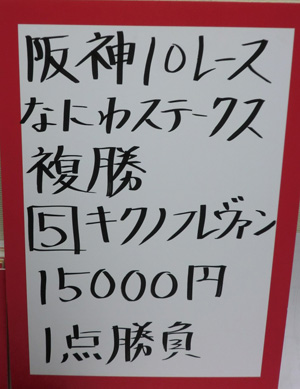 阪神10レース
なにわステークス
複勝
5キクノフレヴァン
15000円
1点勝負